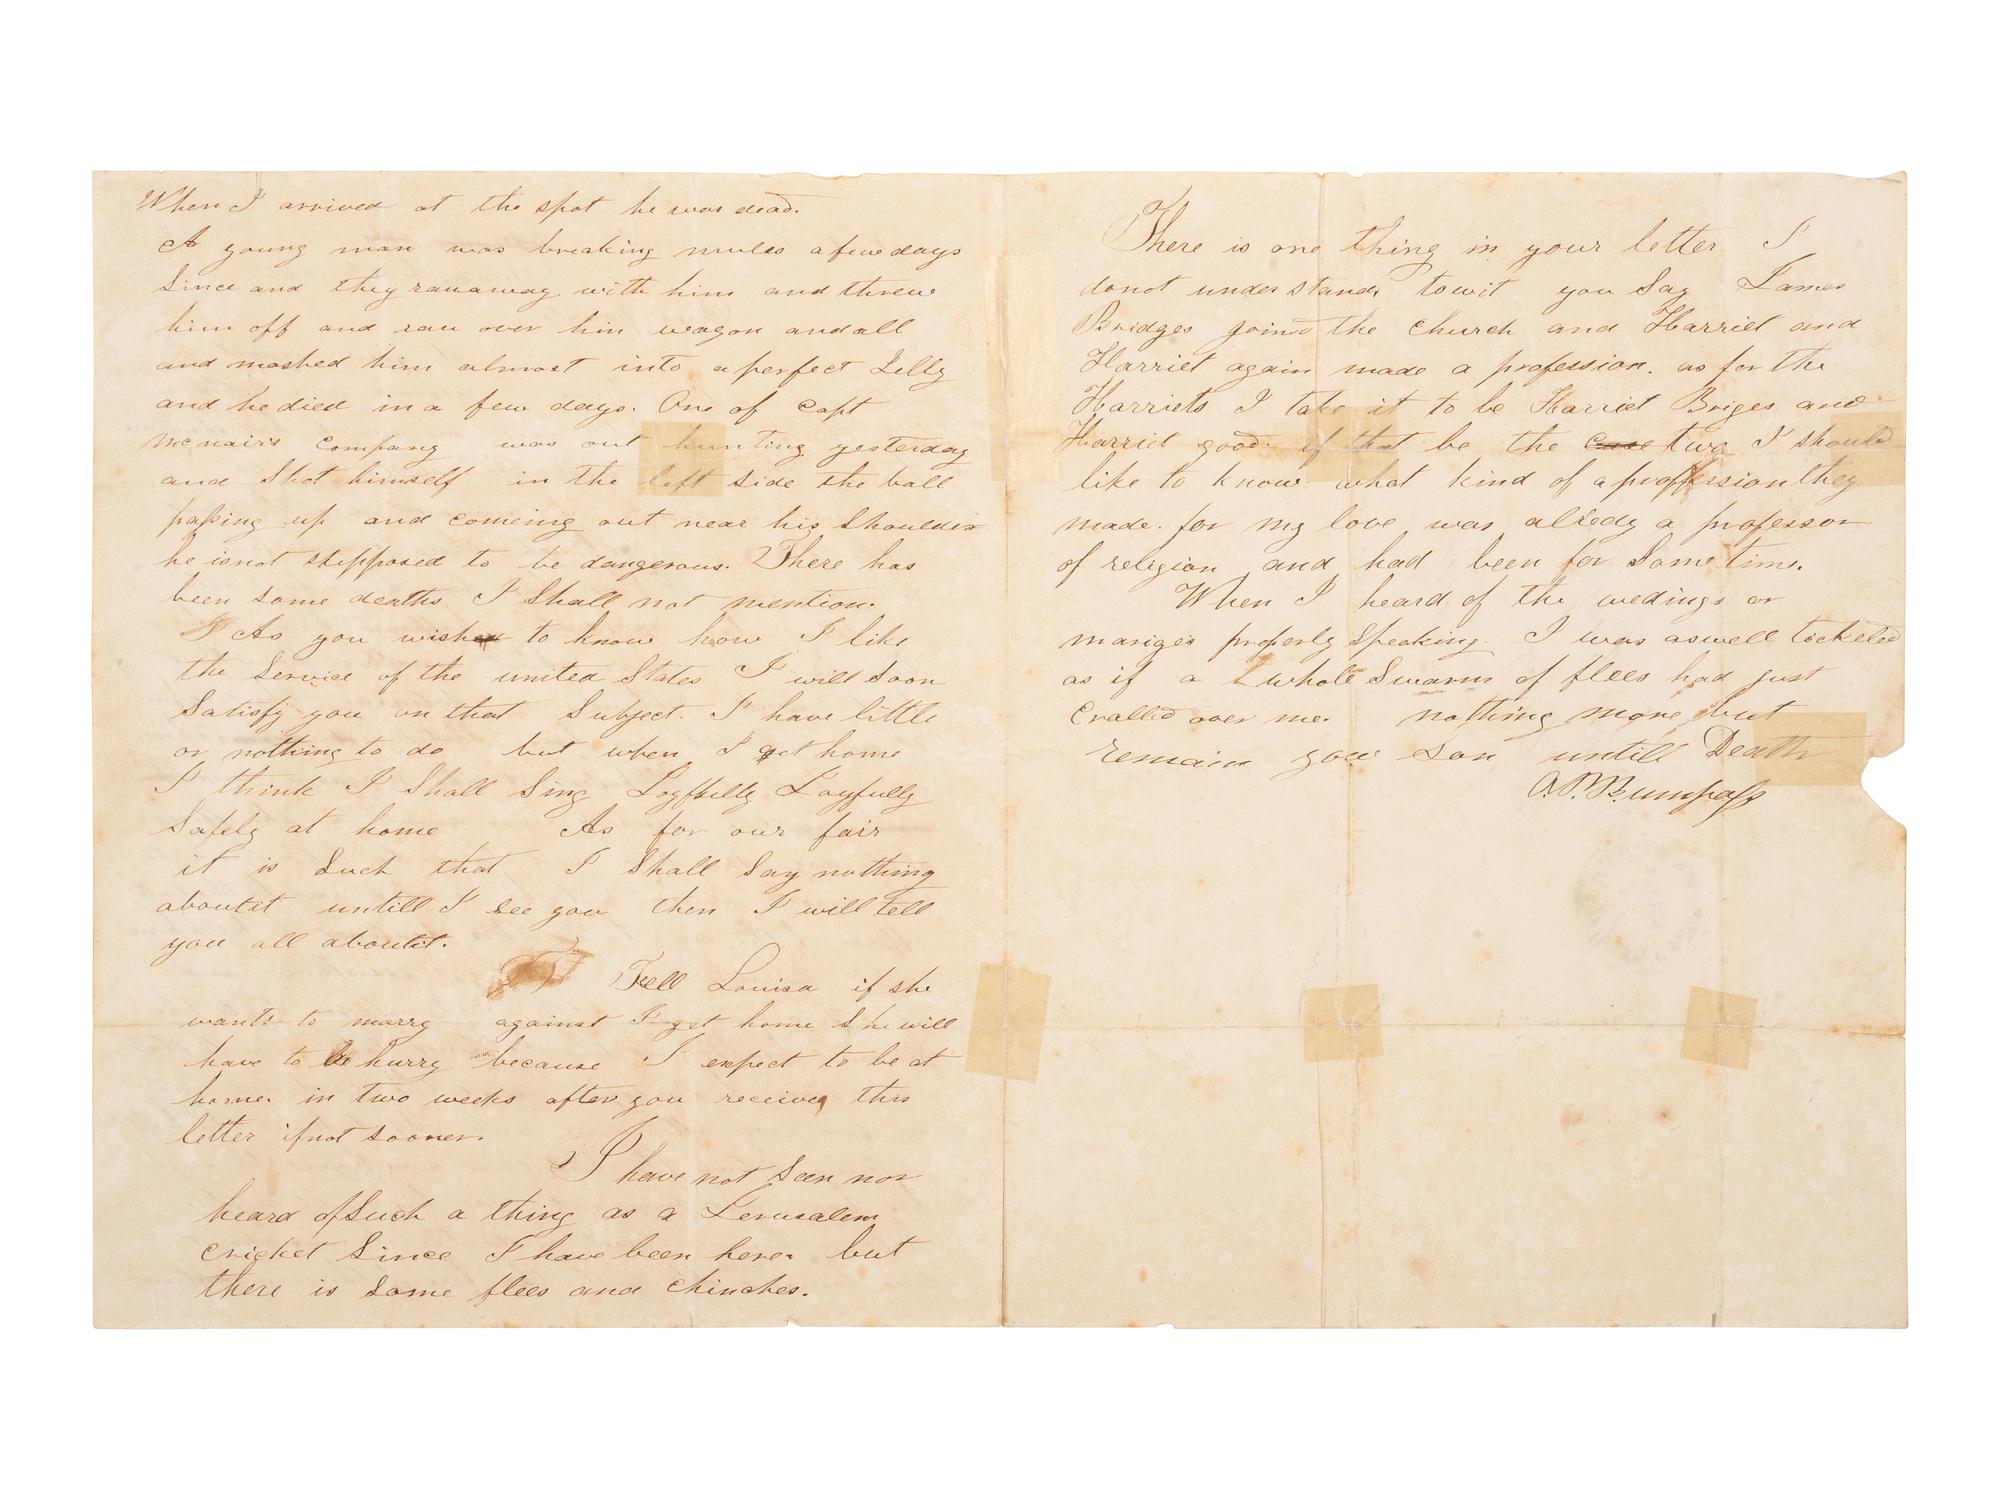 When I arrived at the spot he was dead.
A young man was breaking mules a few days
Since and they ranaway with him and threw
him off and ran over him wagon and all
and mashed him almost into a perfect Jelly
and he died in a few days. One of Capt
McNairs Company was out hunting yesterday
and Shot himself in the left side the ball
paſsing up and comeing out near his Shoulder
he is not stepposed to be dangerous. There has
been some deaths I Shall not mention.
As you wish to know how I like
the Service of the united States I will soon
Satisfy you on that Subject. I have little
or nothing to do but when I get home
I think I Shall Sing Joyfully Joyfully
Safely at home As for our fair
it is Such that I Shall Say nothing
aboutit untill I see you then I will tell
you all aboutit.
Tell Louisa if she
wants to marry against I get home She will
have to be hurry because I expect to be at
home in two weeks after you receive this
letter if not sooner.
I have not Seen nor
heard of Such a thing as a Jerusalem
cricket Since I have been here. but
there is Some flees and chinches.
There is one thing in your letter I
donot understand, towit you Say James
Bridges joined the church and Harriet and
Harriet again made a profession. as for the
Harriets I take it to be Harriet Briges and
Harriet good. if that be the case two I should
like to know what kind of a proffession they
made. for my love was alredy a professor
of religion and had been for Some time.
When I heard of the wedings or
mariges properly Speaking. I was aswell tickeled
as if a whole Swarm of flees had just
cralled over me. nothing more but
remain your son untill Death
A.P. Bumpaſs